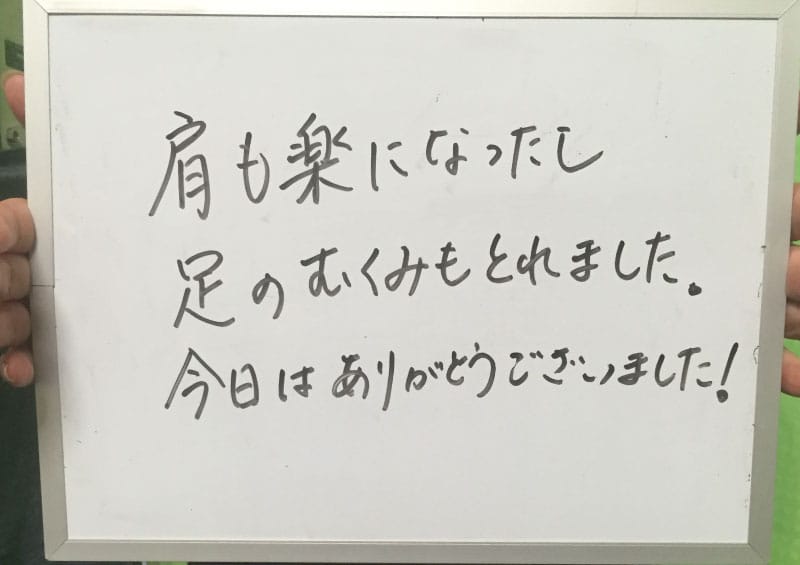 肩も楽になったし
足のむくみもとれました。
今日はありがとうございました!